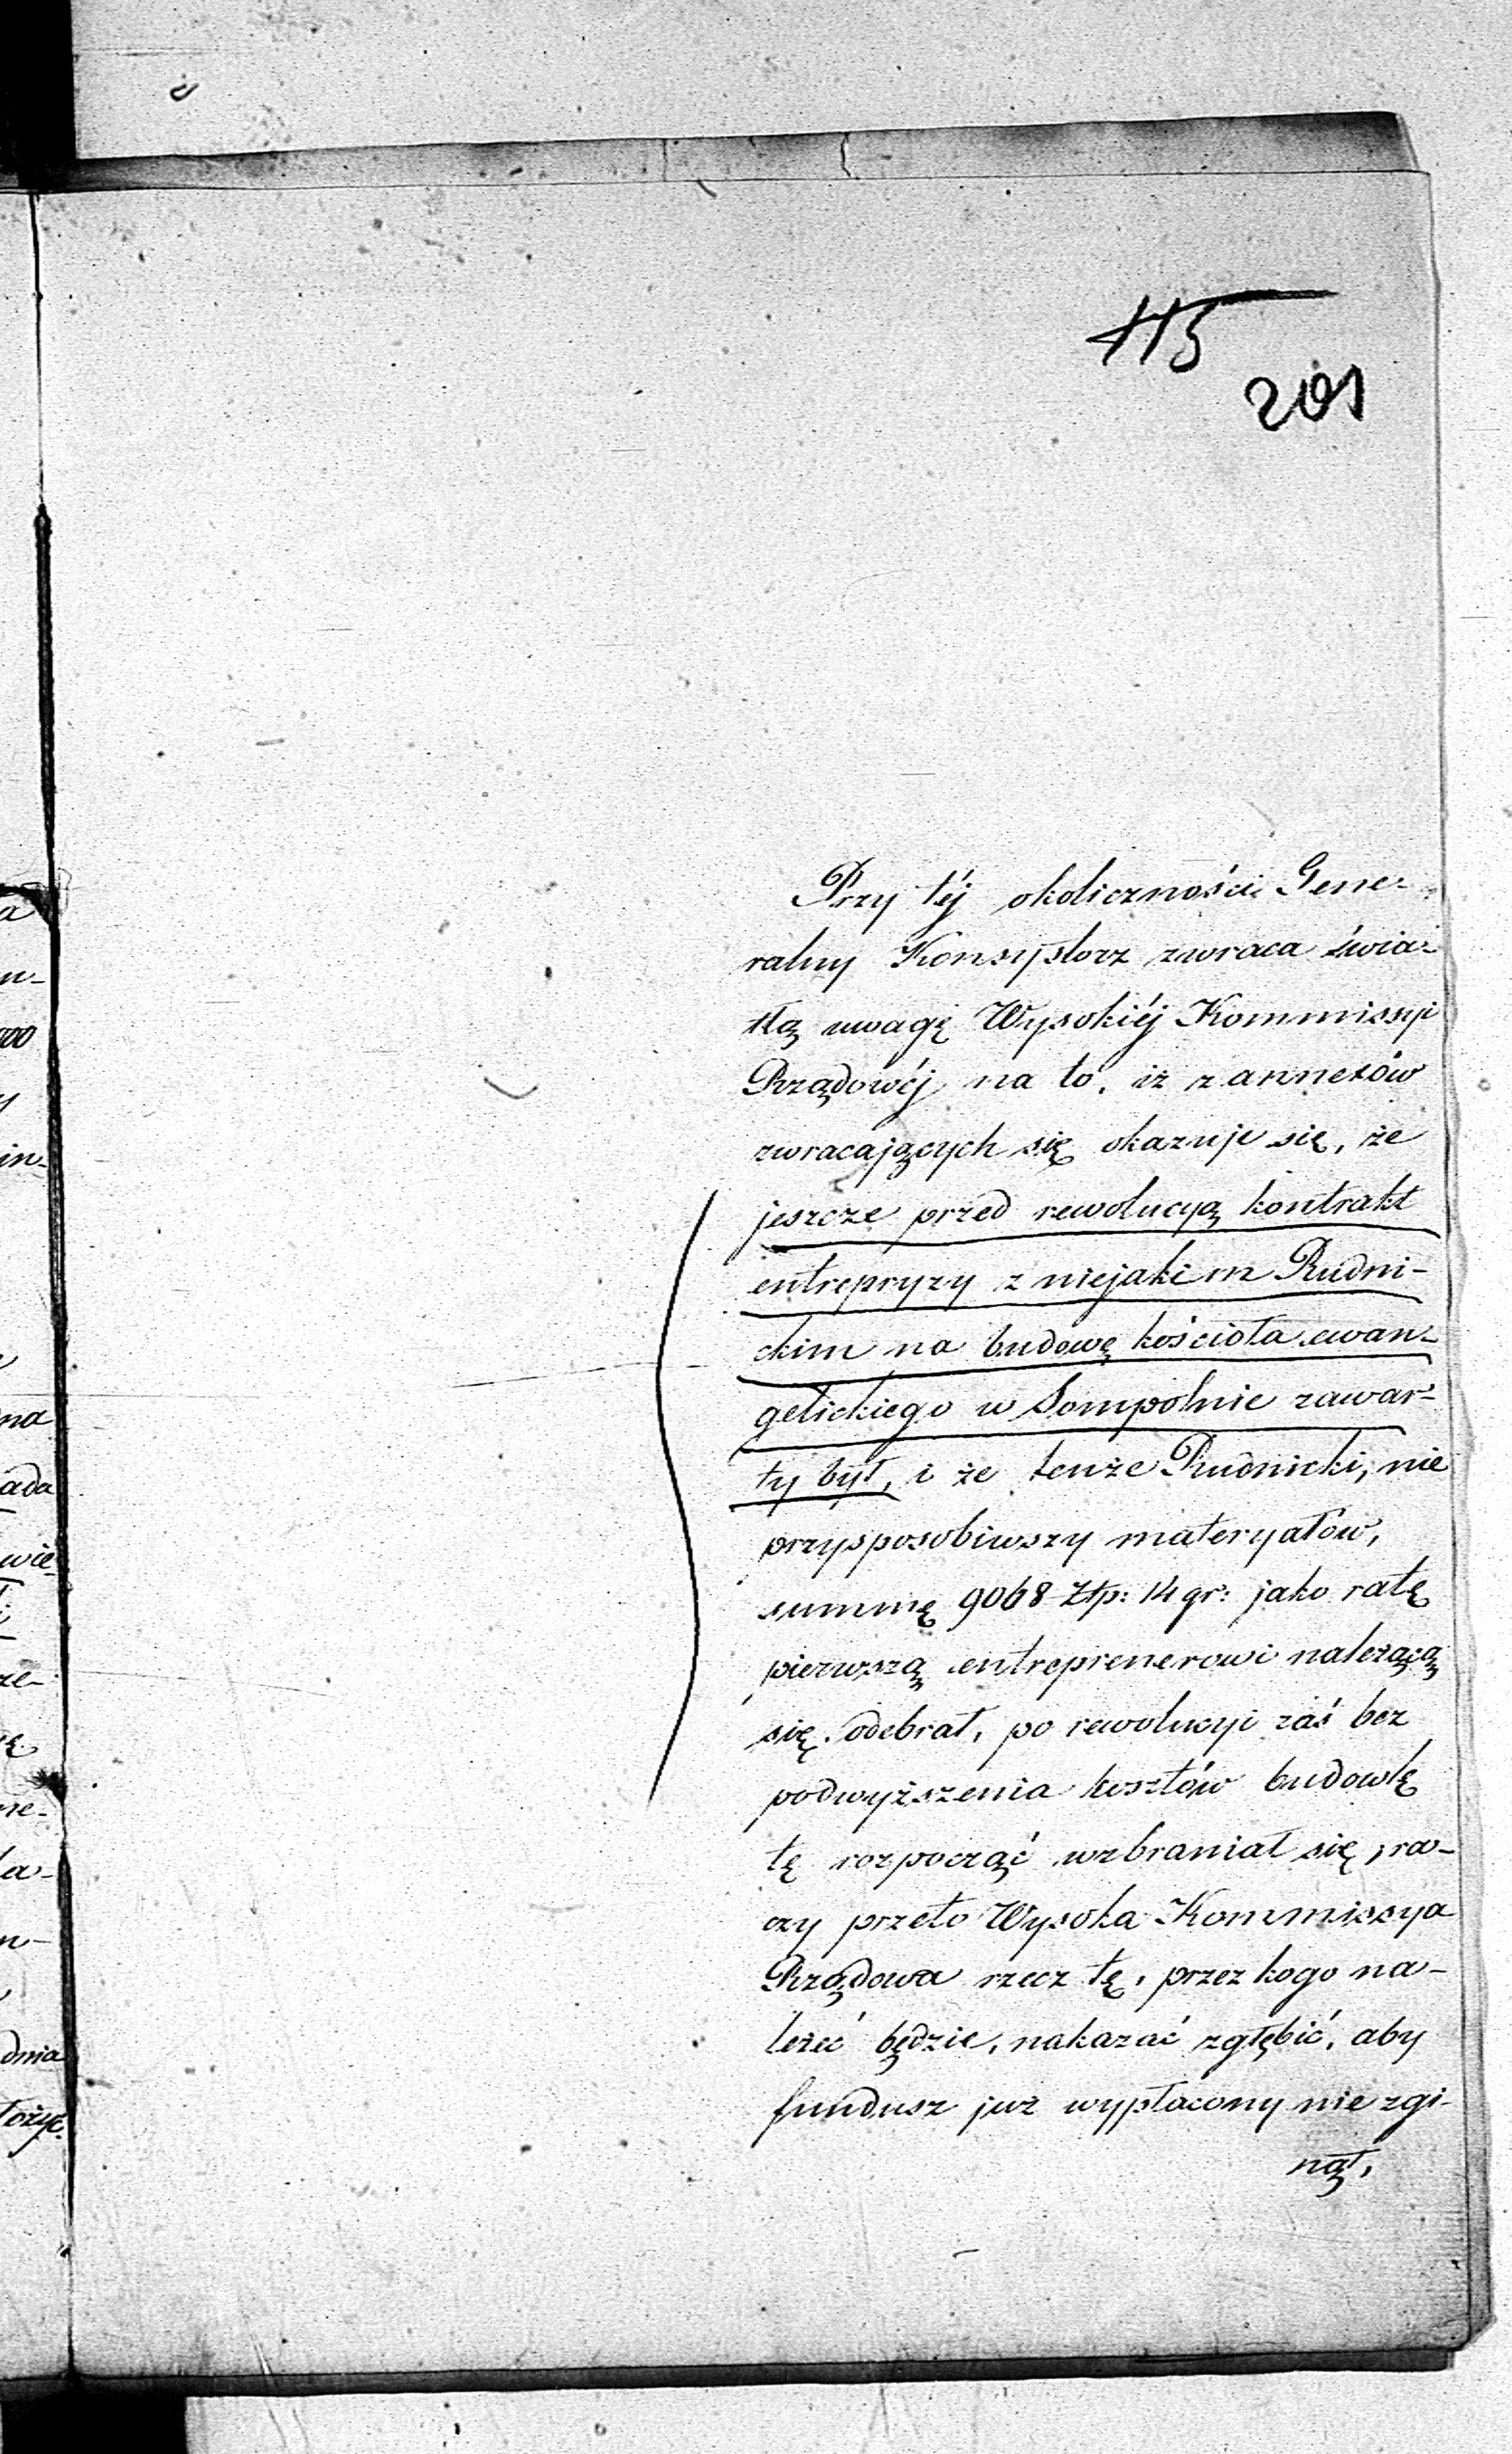 115
201
Przy téj okoliczności Gene-
ralny Konsystorz zwraca świa-
tłą uwagę Wysokiéj Kommissyi
Rządowéj na to, iż z annexów
zwracających się okazuje się, że
jeszcze przed rewolucyą kontrakt
entrepryzy z niejakim Rudni-
ckim na budowę kościoła ewan-
gelickiego w Sompolnie zawar-
ty był, i że tenże Rudnicki, nie
przysposobiwszy materyałów,
summę 9068 Złp: 14 gr: jako ratę
pierwszą entreprenerowi należącą
się odebrał, po rewolucyi zaś bez
podwyższenia kosztów budowlę
tę rozpocząć wzbraniał się, ra-
czy przeto Wysoka Kommissya
Rządowa rzecz tę, przez kogo na-
leżeć będzie, nakazać zgłębić, aby
fundusz już wypłacony nie zgi-
nął,